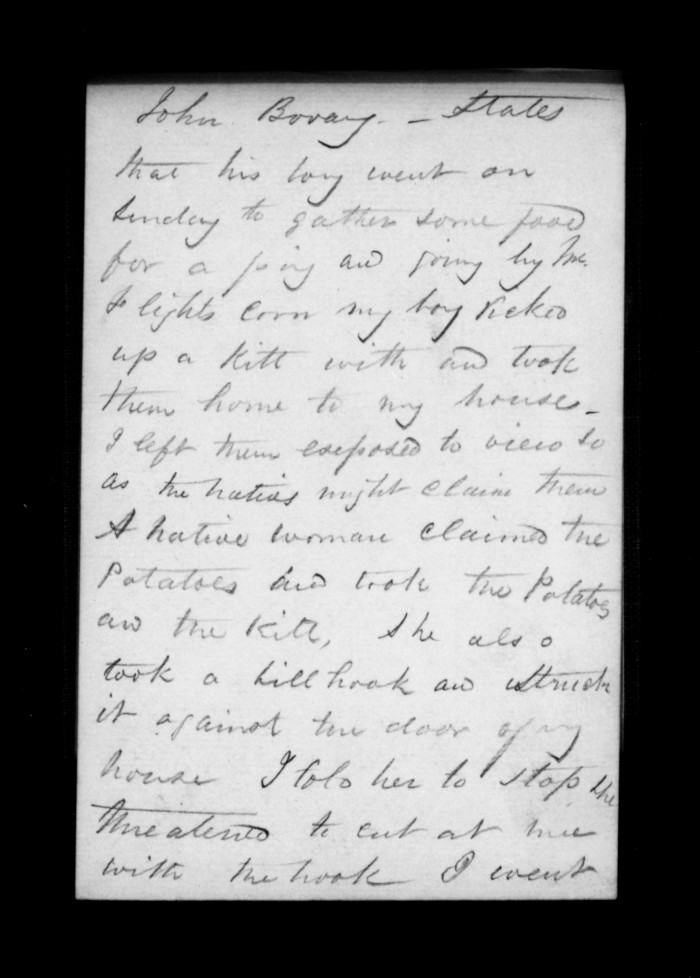 John Bovay. - States
that his boy went on
Sunday to gather some food
for a pig and going by Mr.
Slights corn my boy kicked
up a Kitt with and took
them home to my house -
I left them exposed to view so
as the natives might claim them
A native woman claimed the
Potatoes and took the Potatoes
and the Kitt, She also
took a billhook and struck
it against the door of my
house I told her to stop she
threatened to cut at me
with the hook I went